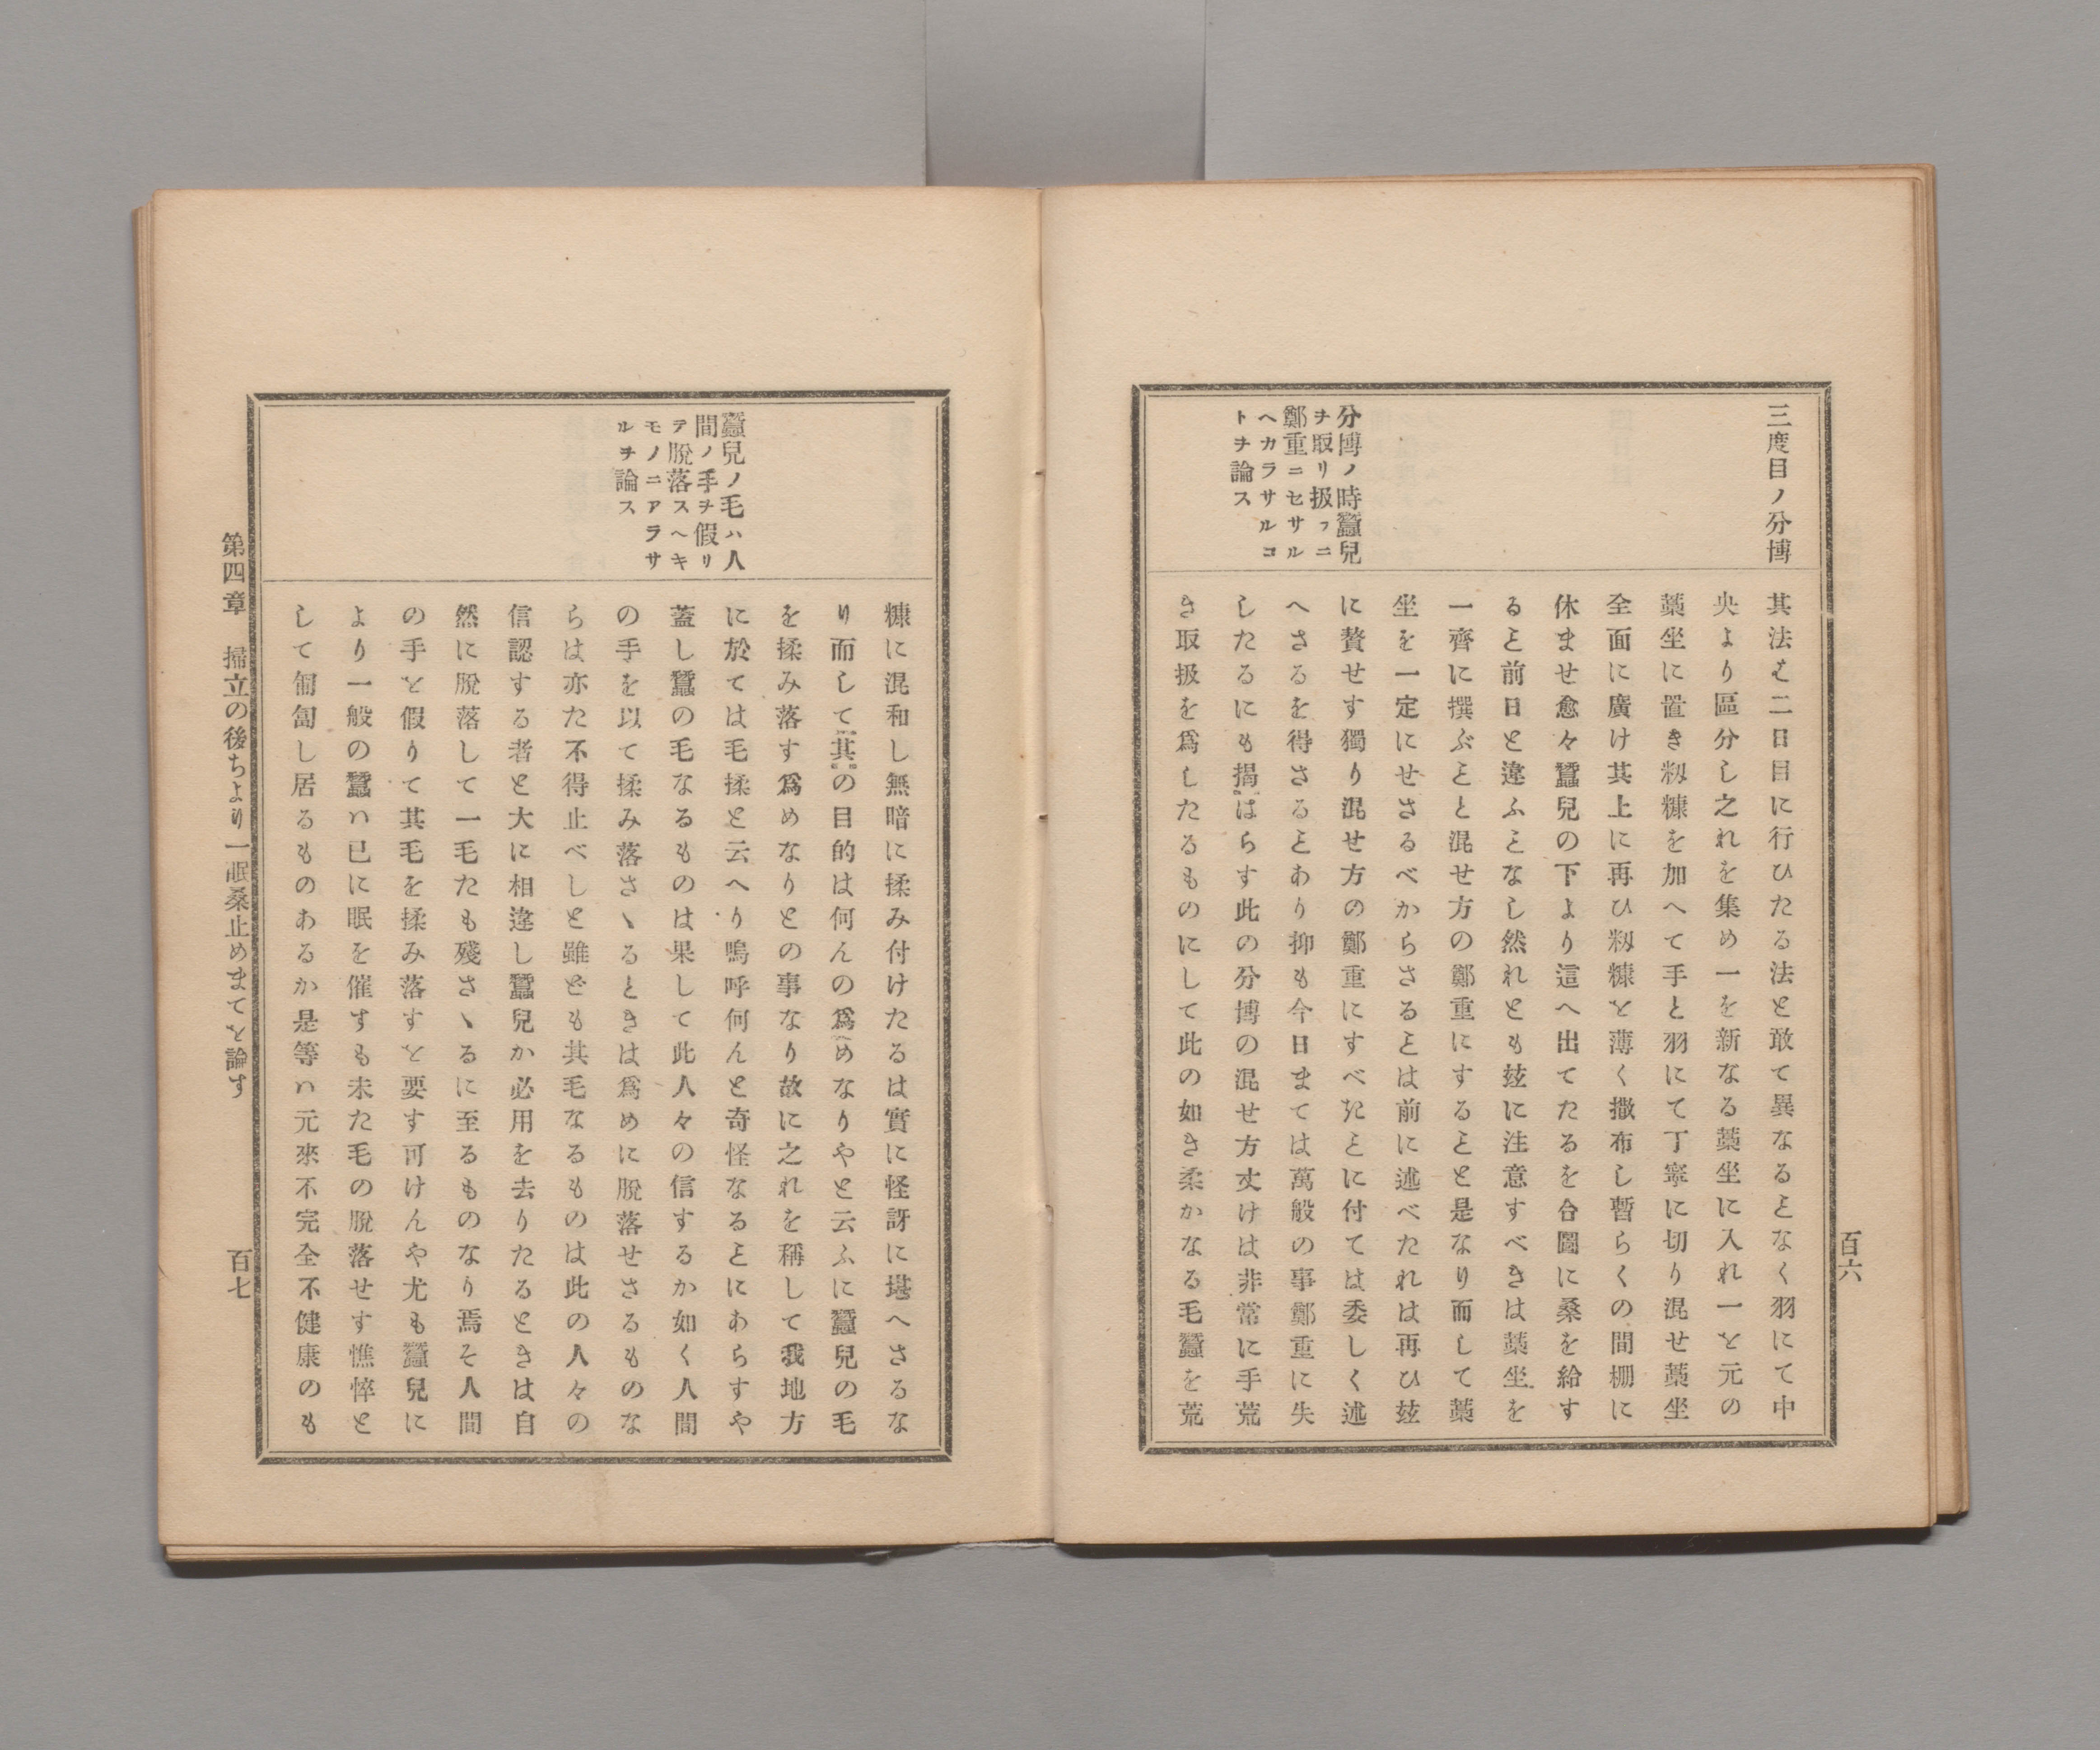 百六
三度目ノ分博
分博ノ時蠶兒
ヲ取リ扱フニ
鄭重ニセサル
ヘカラサルコ
トヲ論ス
其法は二日目に行ひたる法と敢て異なるヿなく羽にて中
央より區分し之れを集め一を新なる藁坐に入れ一を元の
藁坐に置き籾糠を加へて手と羽にて丁寧に切り混せ藁坐
全面に廣け其上に再ひ籾糠を薄く撒布し暫らくの間棚に
休ませ愈々蠶兒の下より這へ出てたるを合圖に桑を給す
るヿ前日と違ふヿなし然れとも玆に注意すべきは藁坐を
一齊に撰ぶヿと混せ方の鄭重にするヿと是なり而して藁
坐を一定にせさるべからさるヿは前に述べたれは再ひ玆
に贅せす獨り混せ方の鄭重にすべきヿに付ては委しく述
へさるを得さるヿあり抑も今日まては萬般の事鄭重に失
したるにも拐はらす此の分博の混せ方丈けは非常に手荒
き取扱を爲したるものにして此の如き柔かなる毛蠶を荒
蠶兒ノ毛ハ人
間ノ手ヲ假リ
テ脫落スヘキ
モノニアラサ
ルヲ論ス
糠に混和し無暗に揉み付けたるは實に怪訝に堪へさるな
り而して其の目的は何んの爲めなりやと云ふに蠶兒の毛
を揉み落す爲めなりとの事なり故に之れを稱して我地方
に於ては毛揉と云へり嗚呼何んと奇怪なるヿにあらすや
蓋し蠶の毛なるものは果して此人々の信するか如く人間
の手を以て揉み落さヽるときは爲めに脫落せさるものな
らは亦た不得止べしと雖ども其毛なるものは此の人々の
信認する者と大に相違し蠶兒か必用を去りたるときは自
然に脫落して一毛たも殘さヽるに至るものなり焉そ人間
の手を假りて其毛を揉み落すを要す可けんや尤も蠶兒に
より一般の蠶ハ已に眠を催すも未た毛の脫落せす憔悴と
して匍匐し居るものあるか是等ハ元來不完全不健康のも
第四章　掃立の後ちより一眠桑止めまてを論す
百七